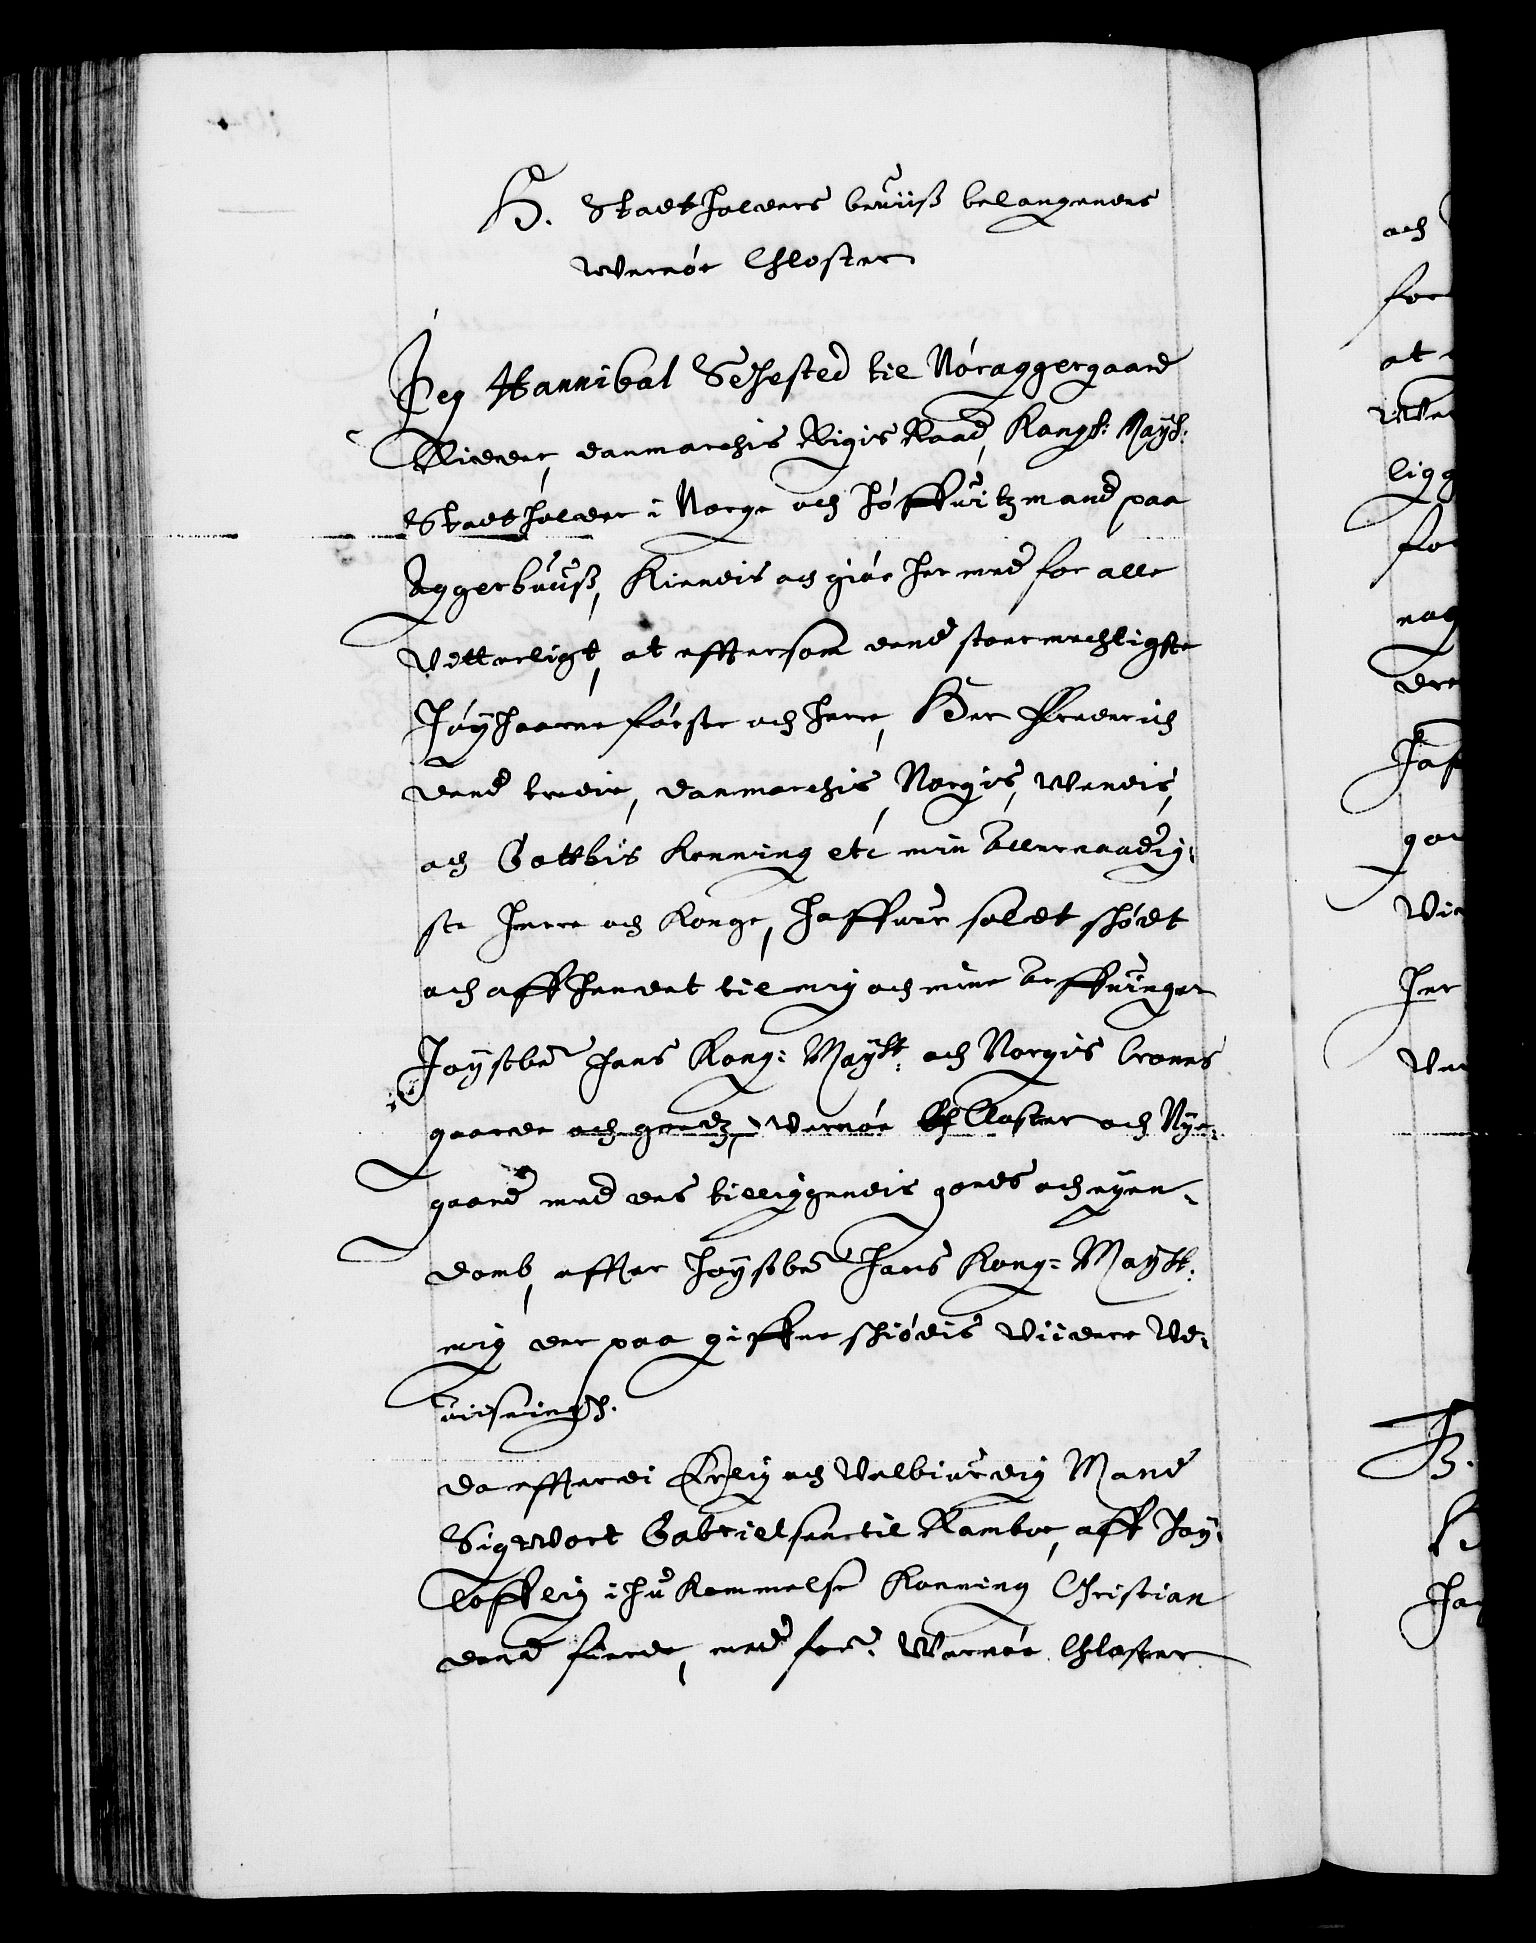 H. Stadtholders beviiss belangendes
Wernøe Chloster
Jeg Hannibal Sehested til Nøraggergaard
Ridder, danmarchis Rigis Raad, Kongl: Mayst:
Stadtholder i Norge och høffvitzmand paa
Aggerhuuss, Kiendis och giør her med for alle
vetterligt, at effter som dend stoermechtigste
høybaarne førster och herre, Her Frederich
dend tredie, danmarchis, Norgis, Wendis,
och Gotthis Konning etc min Allernaadig,
ste herre och Konge, haffver soldt skødt
och affhendet til mig och mine Arffvinger
høystbte hans Kong: Maystt. och Norgis Crones
gaarde och gords, Wernøe Chloster och Nye¬
gaard med des tilliggendis gords och eyen¬
domb, effter høystbte hans Kong: Maystt.
mig der paa giffne schiødis viidere Ud,
viisning.
da efftterdi Erlig och Velbiurdig Mand
Sigvort Gabrielsen til Kamboe, aff høy,
lofflig ihu Kommelse Konning Christian
dend fierde, med forne: Wernøe Chloster
och
for
at
ligg
for
nog
dre
haf
gor
Vii
her
H.
K